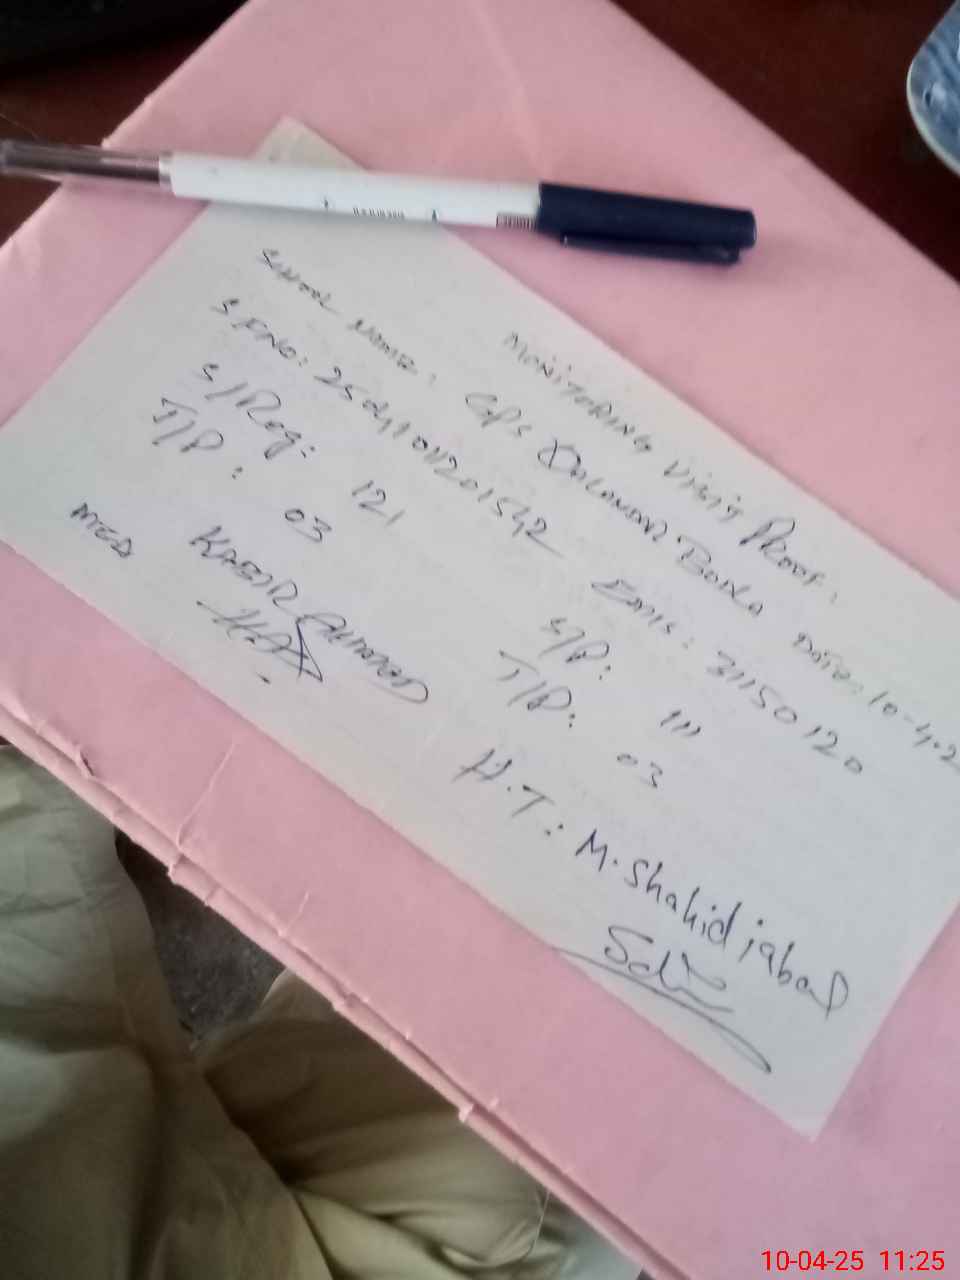 MONITORING VISIT PROOF:
SCHOOL NAME: GPS DALANAI BALA DATE: 10-4-2
S.F.NO: 25041011201542 EMIS: 31150120
S/Reg: 121 S/P: 111
T/P: 03 T/P: 03
MEA KABIR AHMAD H.T: M. Shahid iqbal
10-04-25 11:25